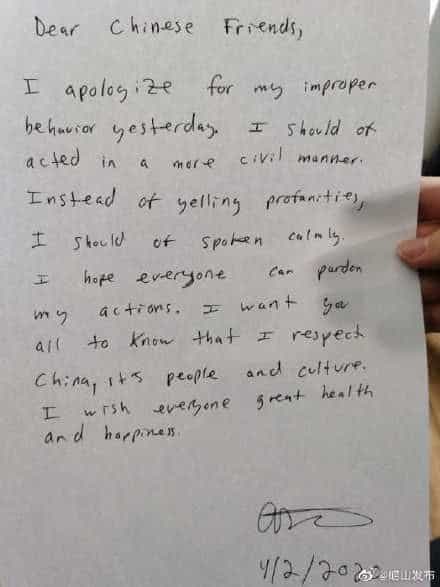 Dear Chinese Friends,
I apologize for my improper
behavior yesterday. I should of
acted in a more civil manner.
Instead of yelling profanities,
I should of spoken calmly.
I hope everyone can pardon
my actions. I want you
all to know that I respect
China, it's people and culture.
I wish everyone great health
and happiness.
4/2/2020
@崂山发布